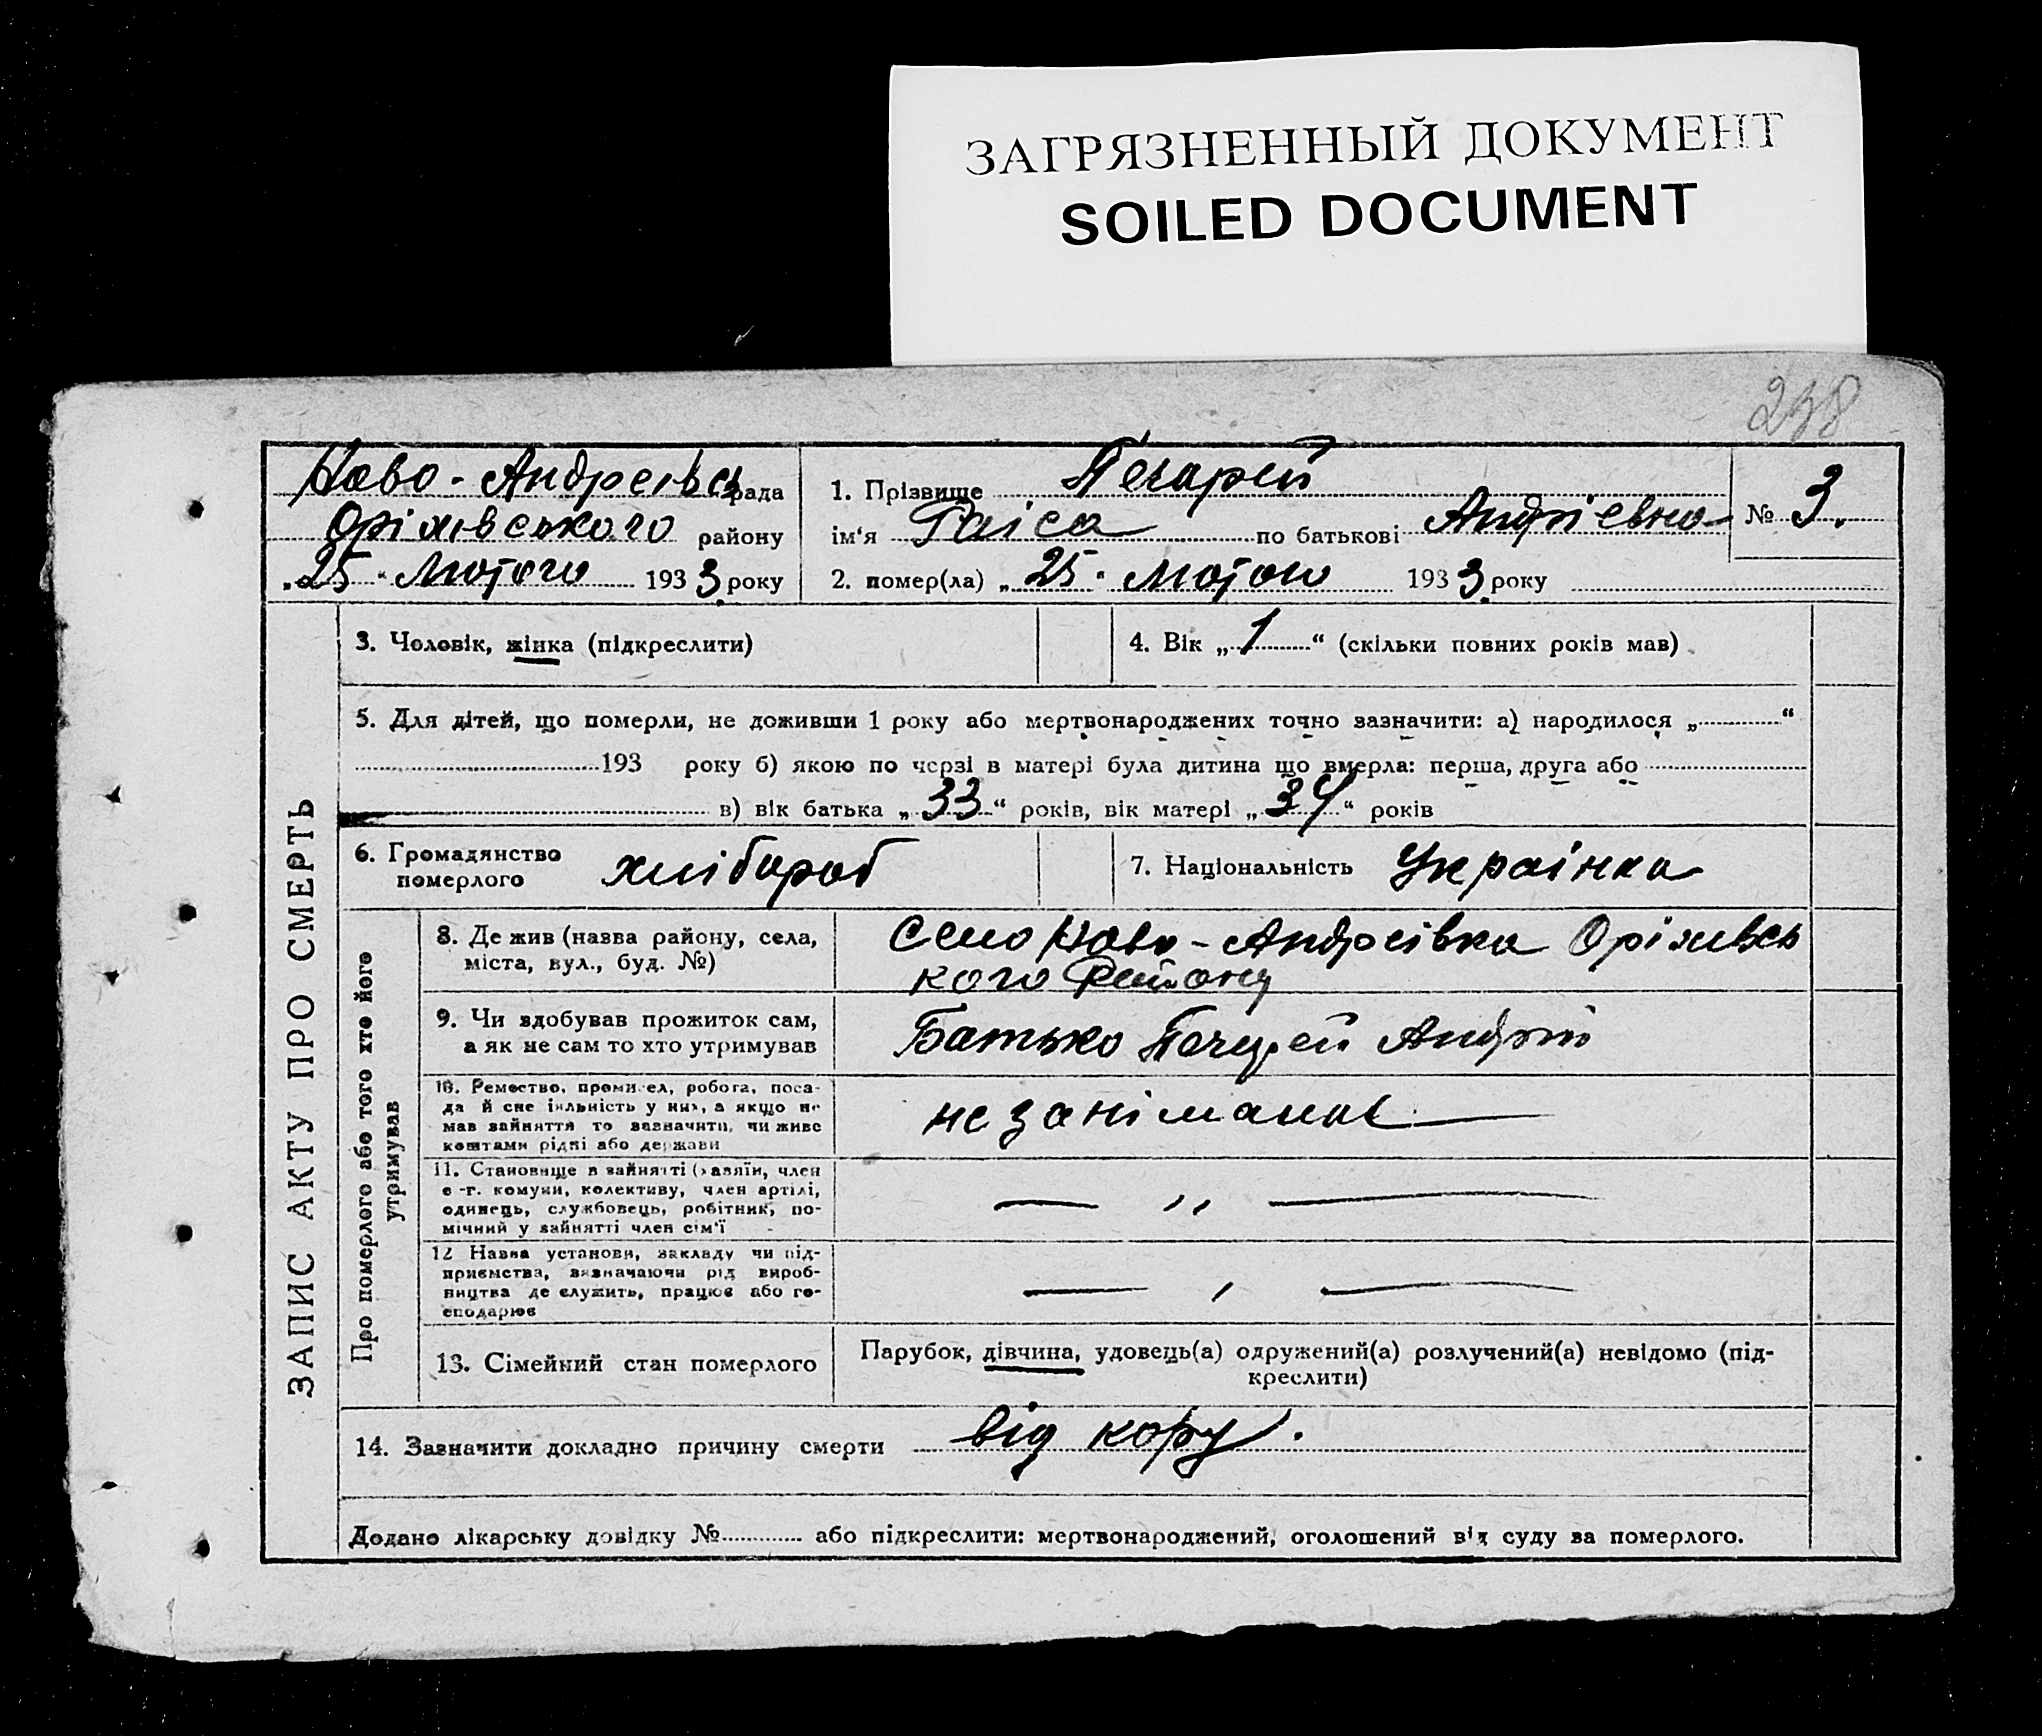 ЗАГРЯЗНЕННЫЙ ДОКУМЕНТ
SOILED DOCUMENT
238
Ново-Андреївсь рада
Оріхівського району
„25“ Лютого 1933 року
1. Прізвище Печарей
ім‘я Раіса по батькові Андрієвна
№ 3.
2. помер(ла) „25“ Лютого 1933 року
ЗАПИС АКТУ ПРО СМЕРТЬ
3. Чоловік, жінка (підкреслити)
4. Вік „1“ (скільки повних років мав)
5. Для дітей, що померли, не доживши 1 року або мертвонароджених точно зазначити: а) народилося „ “
193 року б) якою по черзі в матері була дитина що вмерла: перша, друга або
в) вік батька „33“ років, вік матері „34“ років
6. Громадянство
померлого
хлібороб
7. Національність Українка
Про померлого або того хто його
утримував
8. Де жив (назва району, села,
міста, вул., буд. №)
Село Ново-Андреівка Оріхивсь
кого Району
9. Чи здобував прожиток сам,
а як не сам то хто утримував
Батько Печерей Андрій
10. Ремество, промисел, робота, поса-
да й спеціяльність у них, а якщо не
мав зайняття то зазначити, чи живе
коштами рідні або держави
не занімалас
11. Становище в зайнятті (хазяїн, член
с.-г. комуни, колективу, член артілі,
одинець, службовець, робітник, по-
мічний у зайнятті член сім'ї
— „ —
12 Назва установи, закладу чи під-
приємства, зазначаючи рід вироб-
ництва де служить, працює або го-
сподарює
— , —
13. Сімейний стан померлого
Парубок, дівчина, удовець(а) одружений(а) розлучений(а) невідомо (під-
креслити)
14. Зазначити докладно причину смерти від кору.
Додано лікарську довідку № або підкреслити: мертвонароджений, оголошений від суду за померлого.